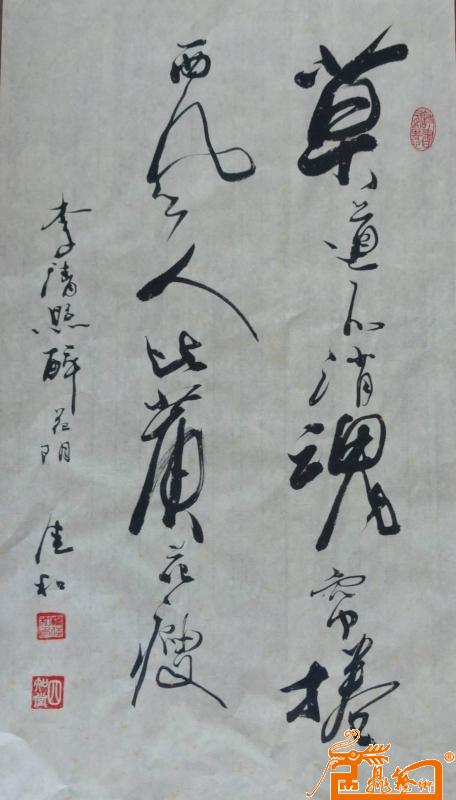 莫道不消魂帘捲
西风人比黄花瘦
李清照醉花阴